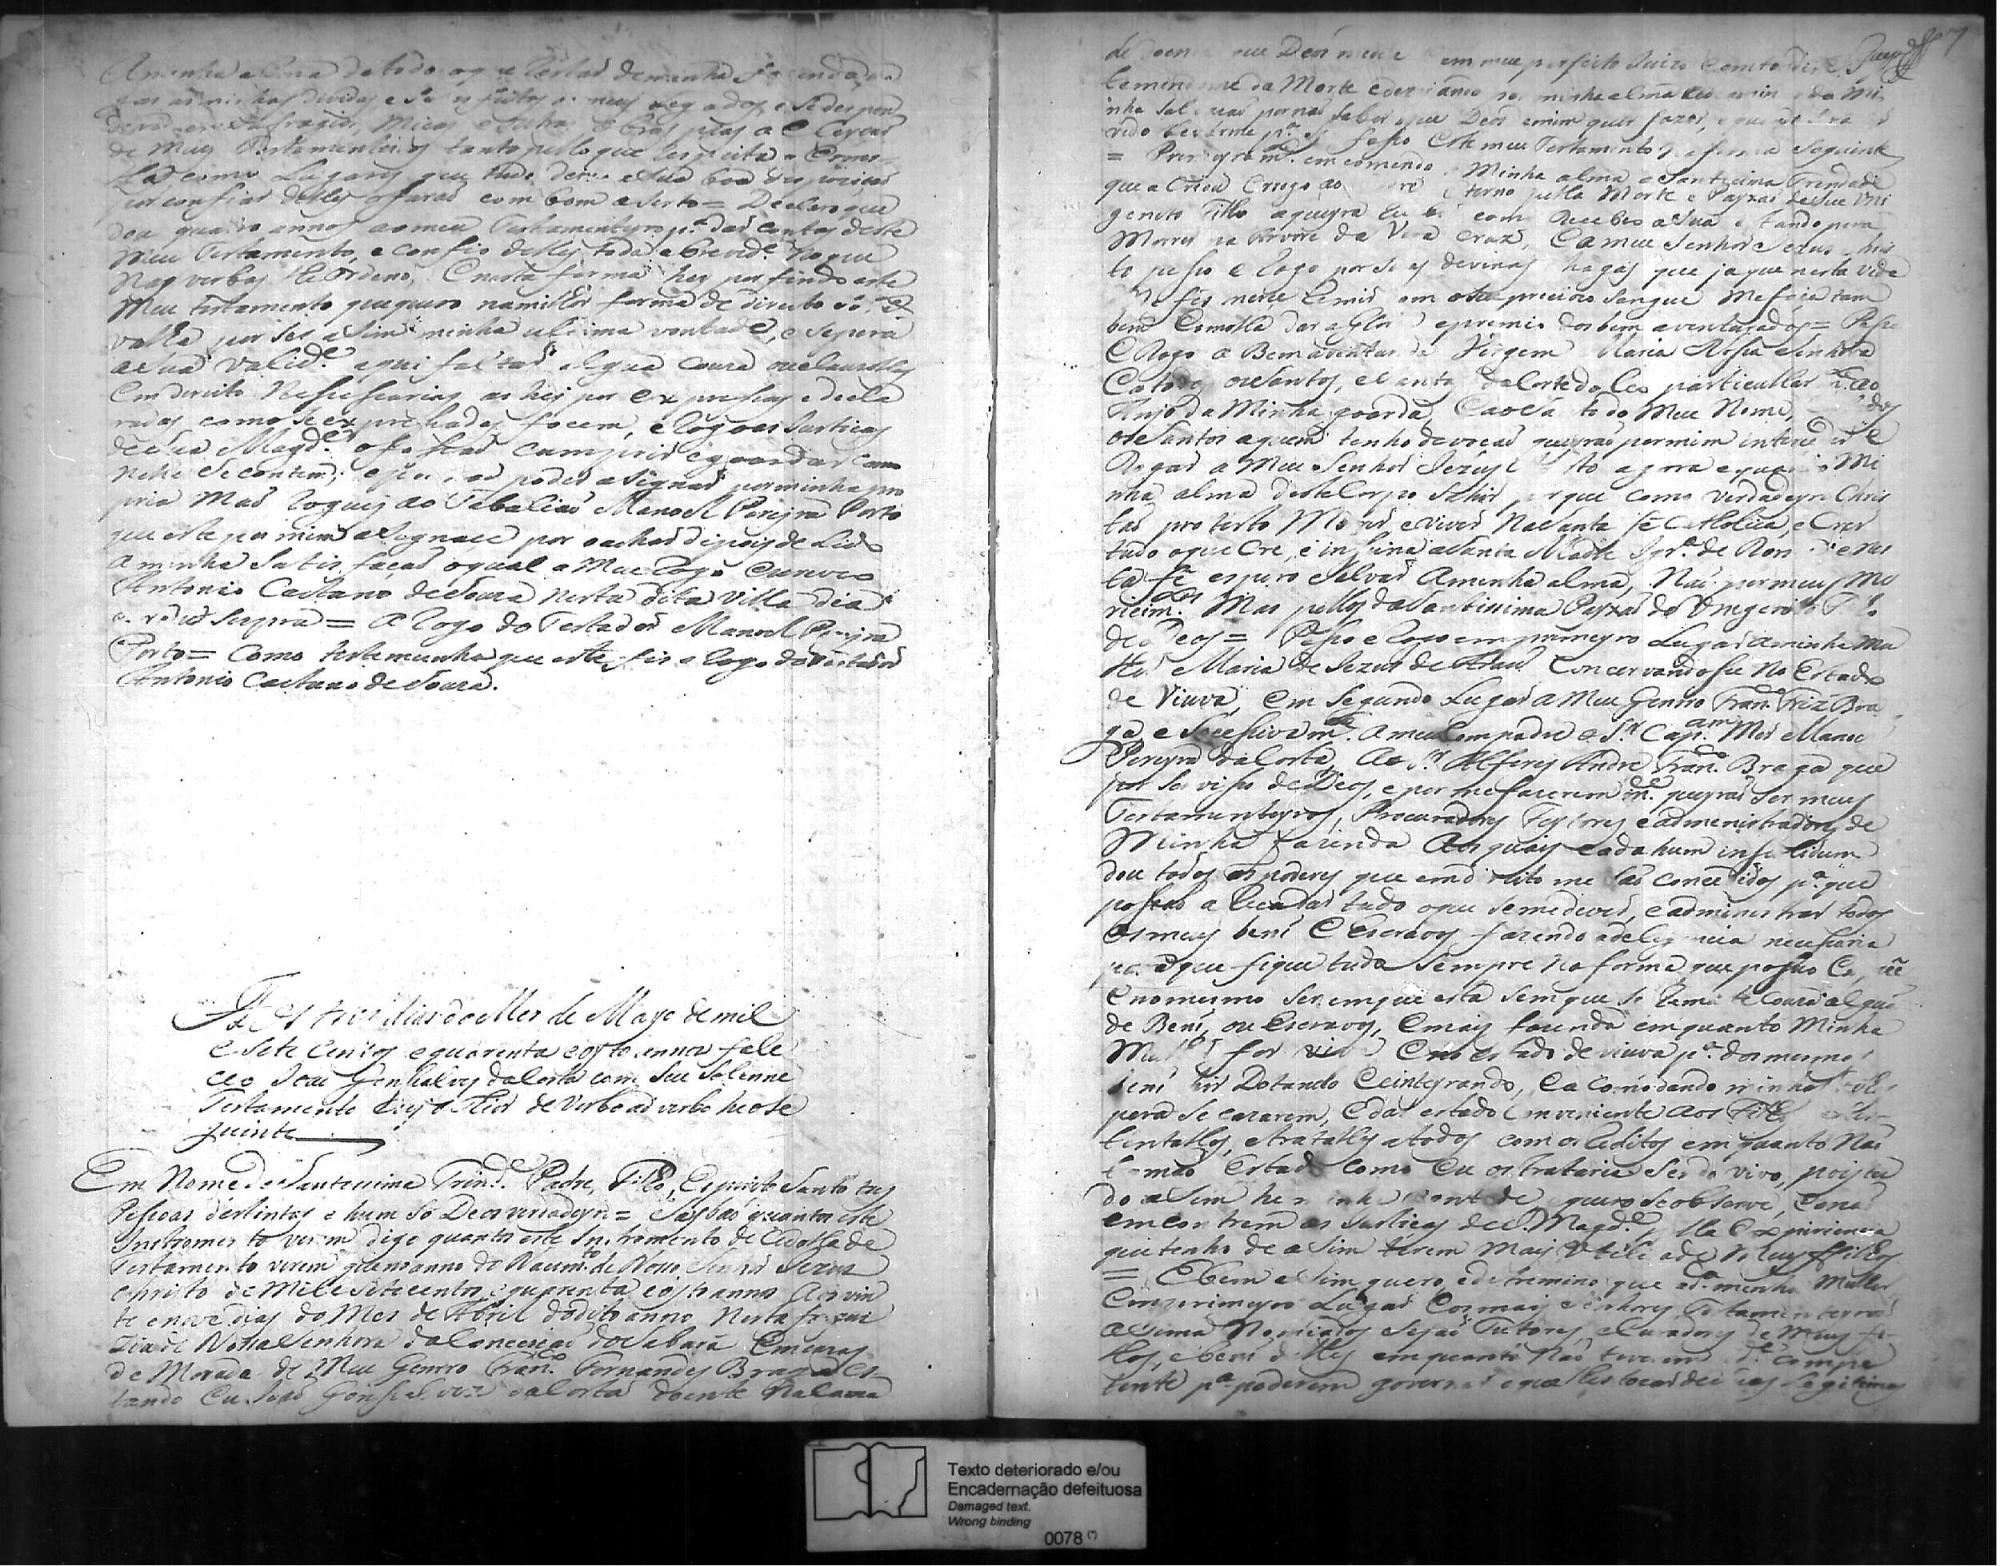 A minha alma de todo o que restar de minha fazenda
gas as minhas dividas e
em sufragios, Missas e outras obras pias a
de meus Testamenteiros tanto pello que respeita a
como Lugares que tudo deixo a sua boa despozicaõ
por confiar delles o faraõ com bom aserto = Declaro que
dou quatro annos ao meu Testamenteyro p.ª dar contas deste
Meu Testamento, e confio delles toda a brevid.e no que
Nas verbas lhe Ordeno, C nesta forma hey por findo este
Meu testamento que quero na milhor forma de direito só
valha por ser asim minha ultima vontade, e se pera
a sua valid.e aqui faltar algua couza ou clauzullas
Em direito Nesesarias as hei por Expresas e decla
radas como se expresadas focem, e Rogo as Justicas
de sua Magd.e o fasaõ cumprir e goardar como
neste se contem; e por naõ poder asignar por minha pro
pria Maõ Roguei ao Tabaliaõ Manoel Pereyra Porto
que este por mim asignace por o achar dipois de Lido
A minha satisfaçaõ o qual a Meu Rogo escreveo
Antonio Caetano de Souza nesta dita Villa dia
e era ut Supra = A Rogo do Testador Manoel Pereyra
Porto = Como testemunha que este fis a Rogo do Testador
Antonio Caetano de Souza.
Aos tres dias do Mes de Mayo de mil
e Sete Centos e quarenta e oyto annos fale
ceo Joaõ Gonsalves da Costa com seu Solenne
Testamento cujo theor de Verbo ad verbo he o se
guinte
Em Nome da Santissima Trind.e Padre, Filho, Espirito Santo tres
Pessoas destintas e hum só Deos verdadeyro = Saybaõ quantos este
Instromento virem digo quantos este Instromento de Cedolla de
Testamento virem que no anno do Nacim.to de Nosso Senhor Jezus
Christo de Mil e Setecentos e quarenta e oyto annos aos vin
te e nove dias do Mes de Abril do dito anno, Nesta fregue
zia de Nossa Senhora da Conceicaõ do Sabará Em cazas
de Morada de Meu Genrro Fran.co Fernandes Braga es
tando Eu Joaõ Gonsalvez da Costa doente Na Cama
de doenca que Deos me deu em meu perfeito Juizo
temendome da Morte e dezejando por minha alma no caminho da
salvaçaõ por naõ saber o que Deos de mim quer fazer, e quando sera ser
vido levarme p.ª si fasso este meu Testamento na forma seguinte
= Primeyram.te emcomendo a Minha alma a Santicima Trindade
que a Criou e rogo ao Padre Eterno pella Morte e Payxaõ de seu Uni
genito Filho a queyra receber como Recebeo a sua estando pera
Morrer na Arvore da Vera Cruz, E a meu Senhor Jezus Chris
to pesso e Rogo por suas devinas chagas que ja que nesta vida
Me fes merce remir com o seu preciozo sangue Me faca tam
bem Esmolla dar a Gloria e premio dos bem aventurados = Pesso
E Rogo a Bemaventurada Virgem Maria Nossa Senhora
E a todos os Santos, e Santas da Corte do Ceo particullarm.te ao
Anjo da Minha goarda, E ao Santo do Meu Nome, e todos
os Santos a quem tenho devocaõ queyraõ por mim interceder E
Rogar a Meu Senhor Jezus Christo agora e quando Mi
nha alma deste Corpo Sahir porque como verdadeyro Chris
taõ protesto Morrer e viver Na Santa Fé Catholica, e Crer
tudo o que Cre, e insina a Santa Madre Igr.ª de Roma e nes
ta fé espero salvar A minha alma, Naõ por meus Me
recim.tos Mas pellos da Santissima Payxaõ do Unigenito Filho
de Deos = Pesso e Rogo em primeyro Lugar a minha Mu
lher Maria de Jezus de Conservandosse No Estado
de Viuva, Em Segundo Lugar a Meu Genrro Fran.co Friz Bra
ga, e Socessivam.te a meu Compadre o S.r Capi.am Mor Manoel
Pereyra da Costa, Ao S.r Alferes Andre Fran.co Braga que
por servisso de Deos, e por me fazerem m.ce queyraõ ser meus
Testamenteyros, Procuradores Feytores e admenistradores de
Minha Fazenda Aos quais e a cada hum insolidum
dou todos os poderes que em direito me saõ concedidos p.ª que
possaõ a Recadar tudo o que se me dever, e admenistrar todos
os meus bens E Escravos fazendo a deligencia necessaria
para que fique tudo sempre na forma que possuo
E no mesmo ser em que esta sem que se Remate Couza algua
de Bens, ou Escravos, E mais fazenda em quanto Minha
Mulher for viva E no estado de viuva p.ª dos mesmos
bens hir Dotando E eintegrando, E acomodando minhas filhas
pera se cazarem, E dar estado Conveniente aos Filhos e sus
tentallos, e tratallos a todos com os Reditos em quanto Naõ
tomaõ Estado como Eu os trataria sendo vivo, pois tu
do asim he minha vontade e quero se observe, E naõ
emcontrem as Justicas de S. Magd.e pella Experiencia
que tenho de asim terem mais Utilidade os meus filhos
= E bem asim quero, e detremino que a d.ª minha Mulher
Em primeyro Lugar E os mais Senhores Testamenteyros
asima Nomeados sejaõ Tutores, e Curadores de meus fi
lhos, e bens delles em quanto Naõ tiverem id.e compe
tente p.ª poderem governar o que lhes tocar de suas Legitimas
Texto deteriorado e/ou
Encadernação defeituosa
Damaged text.
Wrong binding
0078 (*)